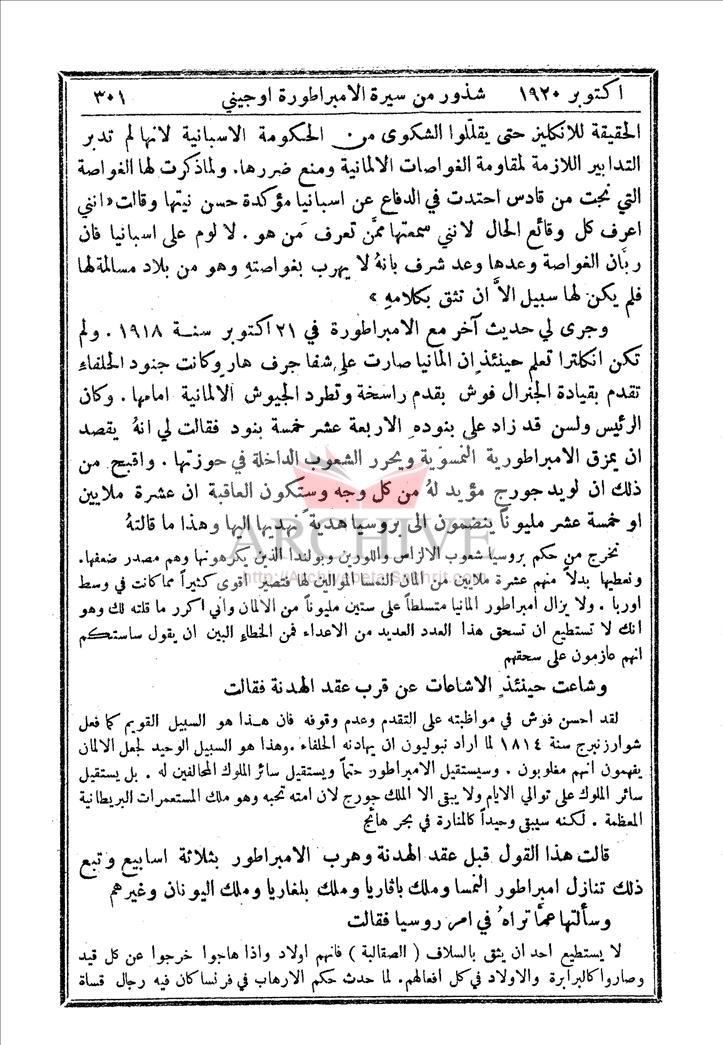 اكتوبر ١٩٢٠ شذور من سيرة الامبراطورة اوجيني ٣٠١
الحقيقة للانكليز حتى يقللوا الشكوى من الحكومة الاسبانية لانها لم تدبر
التدابير اللازمة لمقاومة الغواصات الالمانية ومنع ضررها. ولما ذكرت لها الغواصة
التي نجت من قادس احتدت في الدفاع عن اسبانيا مؤكدة حسن نيتها وقالت «انني
اعرف كل وقائع الحال لانني سمعتها ممَّن تعرف مَن هو. لا لوم على اسبانيا فان
ربَّان الغواصة وعدها وعد شرف بانهُ لا يهرب بغواصتهِ وهو من بلاد مسالمة لها
فلم يكن لها سبيل الاَّ ان تثق بكلامهِ »
وجرى لي حديث آخر مع الامبراطورة في ٢١ اكتوبر سنة ١٩١٨. ولم
تكن انكلترا تعلم حينئذٍ ان المانيا صارت على شفا جرف هار وكانت جنود الحلفاءِ
تقدم بقيادة الجنرال فوش بقدم راسخة وتطرد الجيوش الالمانية امامها. وكان
الرئيس ولسن قد زاد على بنودهِ الاربعة عشر خمسة بنود فقالت لي انهُ يقصد
ان يمزق الامبراطورية النمسوية ويحرر الشعوب الداخلة في حوزتها. واقبح من
ذلك ان لويد جورج مؤيد لهُ من كل وجه وستكون العاقبة ان عشرة ملايين
او خمسة عشر مليوناً ينضمون الى بروسيا هدية نهديها اليها وهذا ما قالتهُ
نخرج من حكم بروسيا شعوب الالزاس واللورين وبولندا الذين يكرهونها وهم مصدر ضعفها.
ونعطيها بدلاً منهم عشرة ملايين من المان النمسا الموالين لها فتصير اقوى كثيراً مما كانت في وسط
اوربا. ولا يزال امبراطور المانيا متسلطاً على ستين مليوناً من الالمان واني اكرر ما قلته لك وهو
انك لا تستطيع ان تسحق هذا العدد العديد من الاعداء فمن الخطاءِ البين ان يقول ساستكم
انهم عازمون على سحقهم
وشاعت حينئذٍ الاشاعات عن قرب عقد الهدنة فقالت
لقد احسن فوش في مواظبته على التقدم وعدم وقوفه فان هذا هو السبيل القويم كما فعل
شوارزنبرج سنة ١٨١٤ لما اراد نبوليون ان يهادنه الحلفاء. وهذا هو السبيل الوحيد لجعل الالمان
يفهمون انهم مغلوبون. وسيستقيل الامبراطور حتماً ويستقيل سائر الملوك المحالفين له. بل يستقيل
سائر الملوك على توالي الايام ولا يبقى الا الملك جورج لان امته تحبه وهو ملك المستعمرات البريطانية
المعظمة. لكنه سيبقى وحيداً كالمنارة في بحر هائج
قالت هذا القول قبل عقد الهدنة وهرب الامبراطور بثلاثة اسابيع وتبع
ذلك تنازل امبراطور النمسا وملك باڤاريا وملك بلغاريا وملك اليونان وغيرهم
وسألتها عمَّا تراهُ في امر روسيا فقالت
لا يستطيع احد ان يثق بالسلاف (الصقالبة) فانهم اولاد واذا هاجوا خرجوا عن كل قيد
وصاروا كالبرابرة والاولاد في كل افعالهم. لما حدث حكم الارهاب في فرنسا كان فيه رجال قساة
ARCHIVE